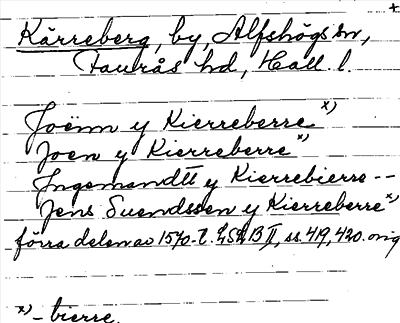 +
Kärreberg, by, Alfshögs sn,
Faurås hd, Hall. l.
Joënn y Kierreberre x)
Joen y Kierreberre x)
Ingemandtt y Kierrebierre --
Jens Suendssen y Kierreberre x)
förra delen av 1570-t. ss. 419, 420. orig
x) - bierre.